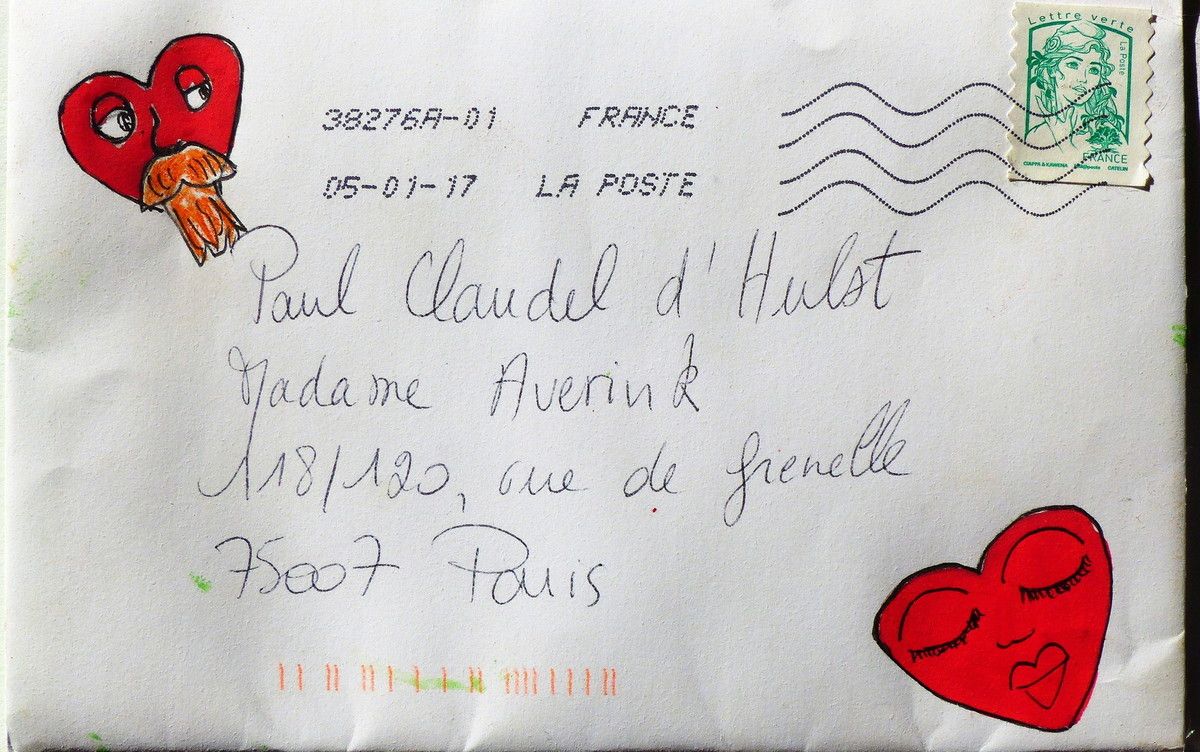 Lettre verte
La Poste
38276A-01 FRANCE
FRANCE
05-01-17 LA POSTE
Paul Claudel d'Hulst
Madame Averink
118/120, rue de Grenelle
75007 Paris